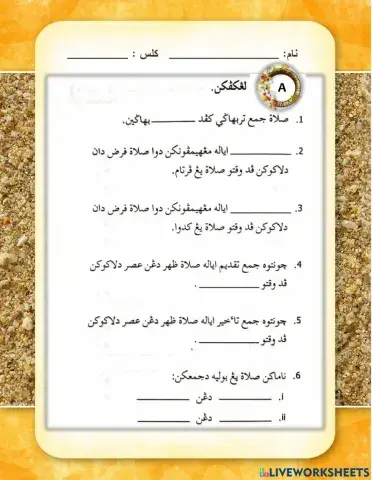 نام: ____________ کلس : ____________
A لڠکڤکن.
1. صلاة جمع تربهاݢي کڤد ________ بهاݢين.
2. ________ اياله مڠهيمڤونکن دوا صلاة فرض دان
دلاکوکن ڤد وقتو صلاة يڠ ڤرتام.
3. ________ اياله مڠهيمڤونکن دوا صلاة فرض دان
دلاکوکن ڤد وقتو صلاة يڠ کدوا.
4. چونتوه جمع تقديم اياله صلاة ظهر دڠن عصر دلاکوکن
ڤد وقتو ________ .
5. چونتوه جمع تاءخير اياله صلاة ظهر دڠن عصر دلاکوکن
ڤد وقتو ________ .
6. ناماکن صلاة يڠ بوليه دجمعکن:
i. ________ دڠن ________
ii. ________ دڠن ________
LIVEWORKSHEETS